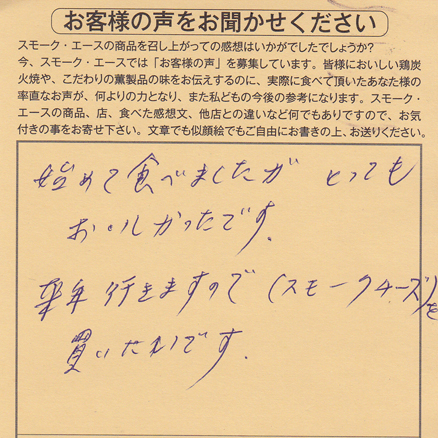 お客様の声をお聞かせください
スモーク・エースの商品を召し上がっての感想はいかがでしたでしょうか?
今、スモーク・エースでは「お客様の声」を募集しています。皆様においしい鶏炭
火焼や、こだわりの薫製品の味をお伝えするのに、実際に食べて頂いたあなた様の
率直なお声が、何よりの力となり、また私どもの今後の参考になります。スモーク・
エースの商品、店、食べた感想文、他店との違いなど何でもありですので、お気
付きの事をお寄せ下さい。文章でも似顔絵でもご自由にお書きの上、お送りください。
始めて食べましたが とっても
おいしかったです。
来年行きますので(スモークチーズ)を
買いたいです。